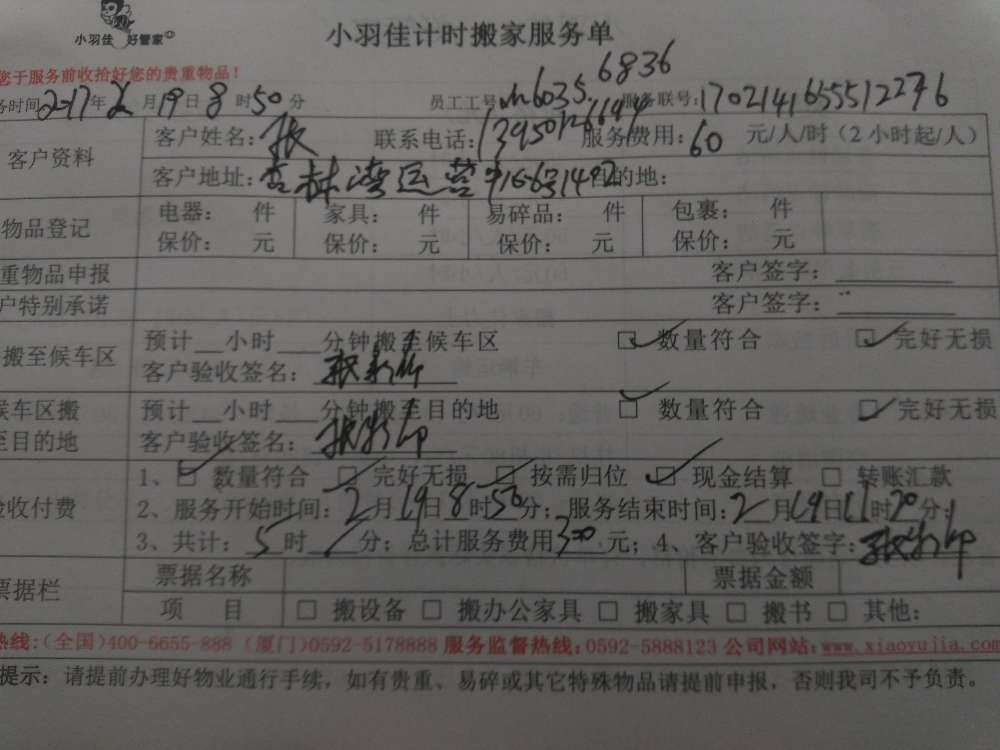 小羽佳 好管家
小羽佳计时搬家服务单
您于服务前收拾好您的贵重物品！
务时间 2017年2月19日8时50分 员工工号 6035. 6836 服务联号:1702141655512276
客户资料
客户姓名:张 联系电话: 服务费用:60 元/人/时（2小时起/人）
客户地址:杏林湾运营 目的地:
物品登记
电器: 件 家具: 件 易碎品: 件 包裹: 件
保价: 元 保价: 元 保价: 元 保价: 元
重物品申报 客户签字:
户特别承诺 客户签字:
搬至候车区
预计__小时___分钟搬至候车区 ☑数量符合 ☑完好无损
客户验收签名:
候车区搬至目的地
预计__小时___分钟搬至目的地 ☑数量符合 ☑完好无损
客户验收签名:
验收付费
1、☑数量符合 ☑完好无损 ☑按需归位 ☑现金结算 □转账汇款
2、服务开始时间:2月19日8时50分; 服务结束时间:2月19日11时20分;
3、共计:5时/分; 总计服务费用300元; 4、客户验收签字:
票据栏
票据名称 票据金额
项 目 □搬设备 □搬办公家具 □搬家具 □搬书 □其他:
热线:(全国)400-6655-888 (厦门)0592-5178888 服务监督热线:0592-5888123 公司网站:www.xiaoyujia.com
提示: 请提前办理好物业通行手续，如有贵重、易碎或其它特殊物品请提前申报，否则我司不予负责。